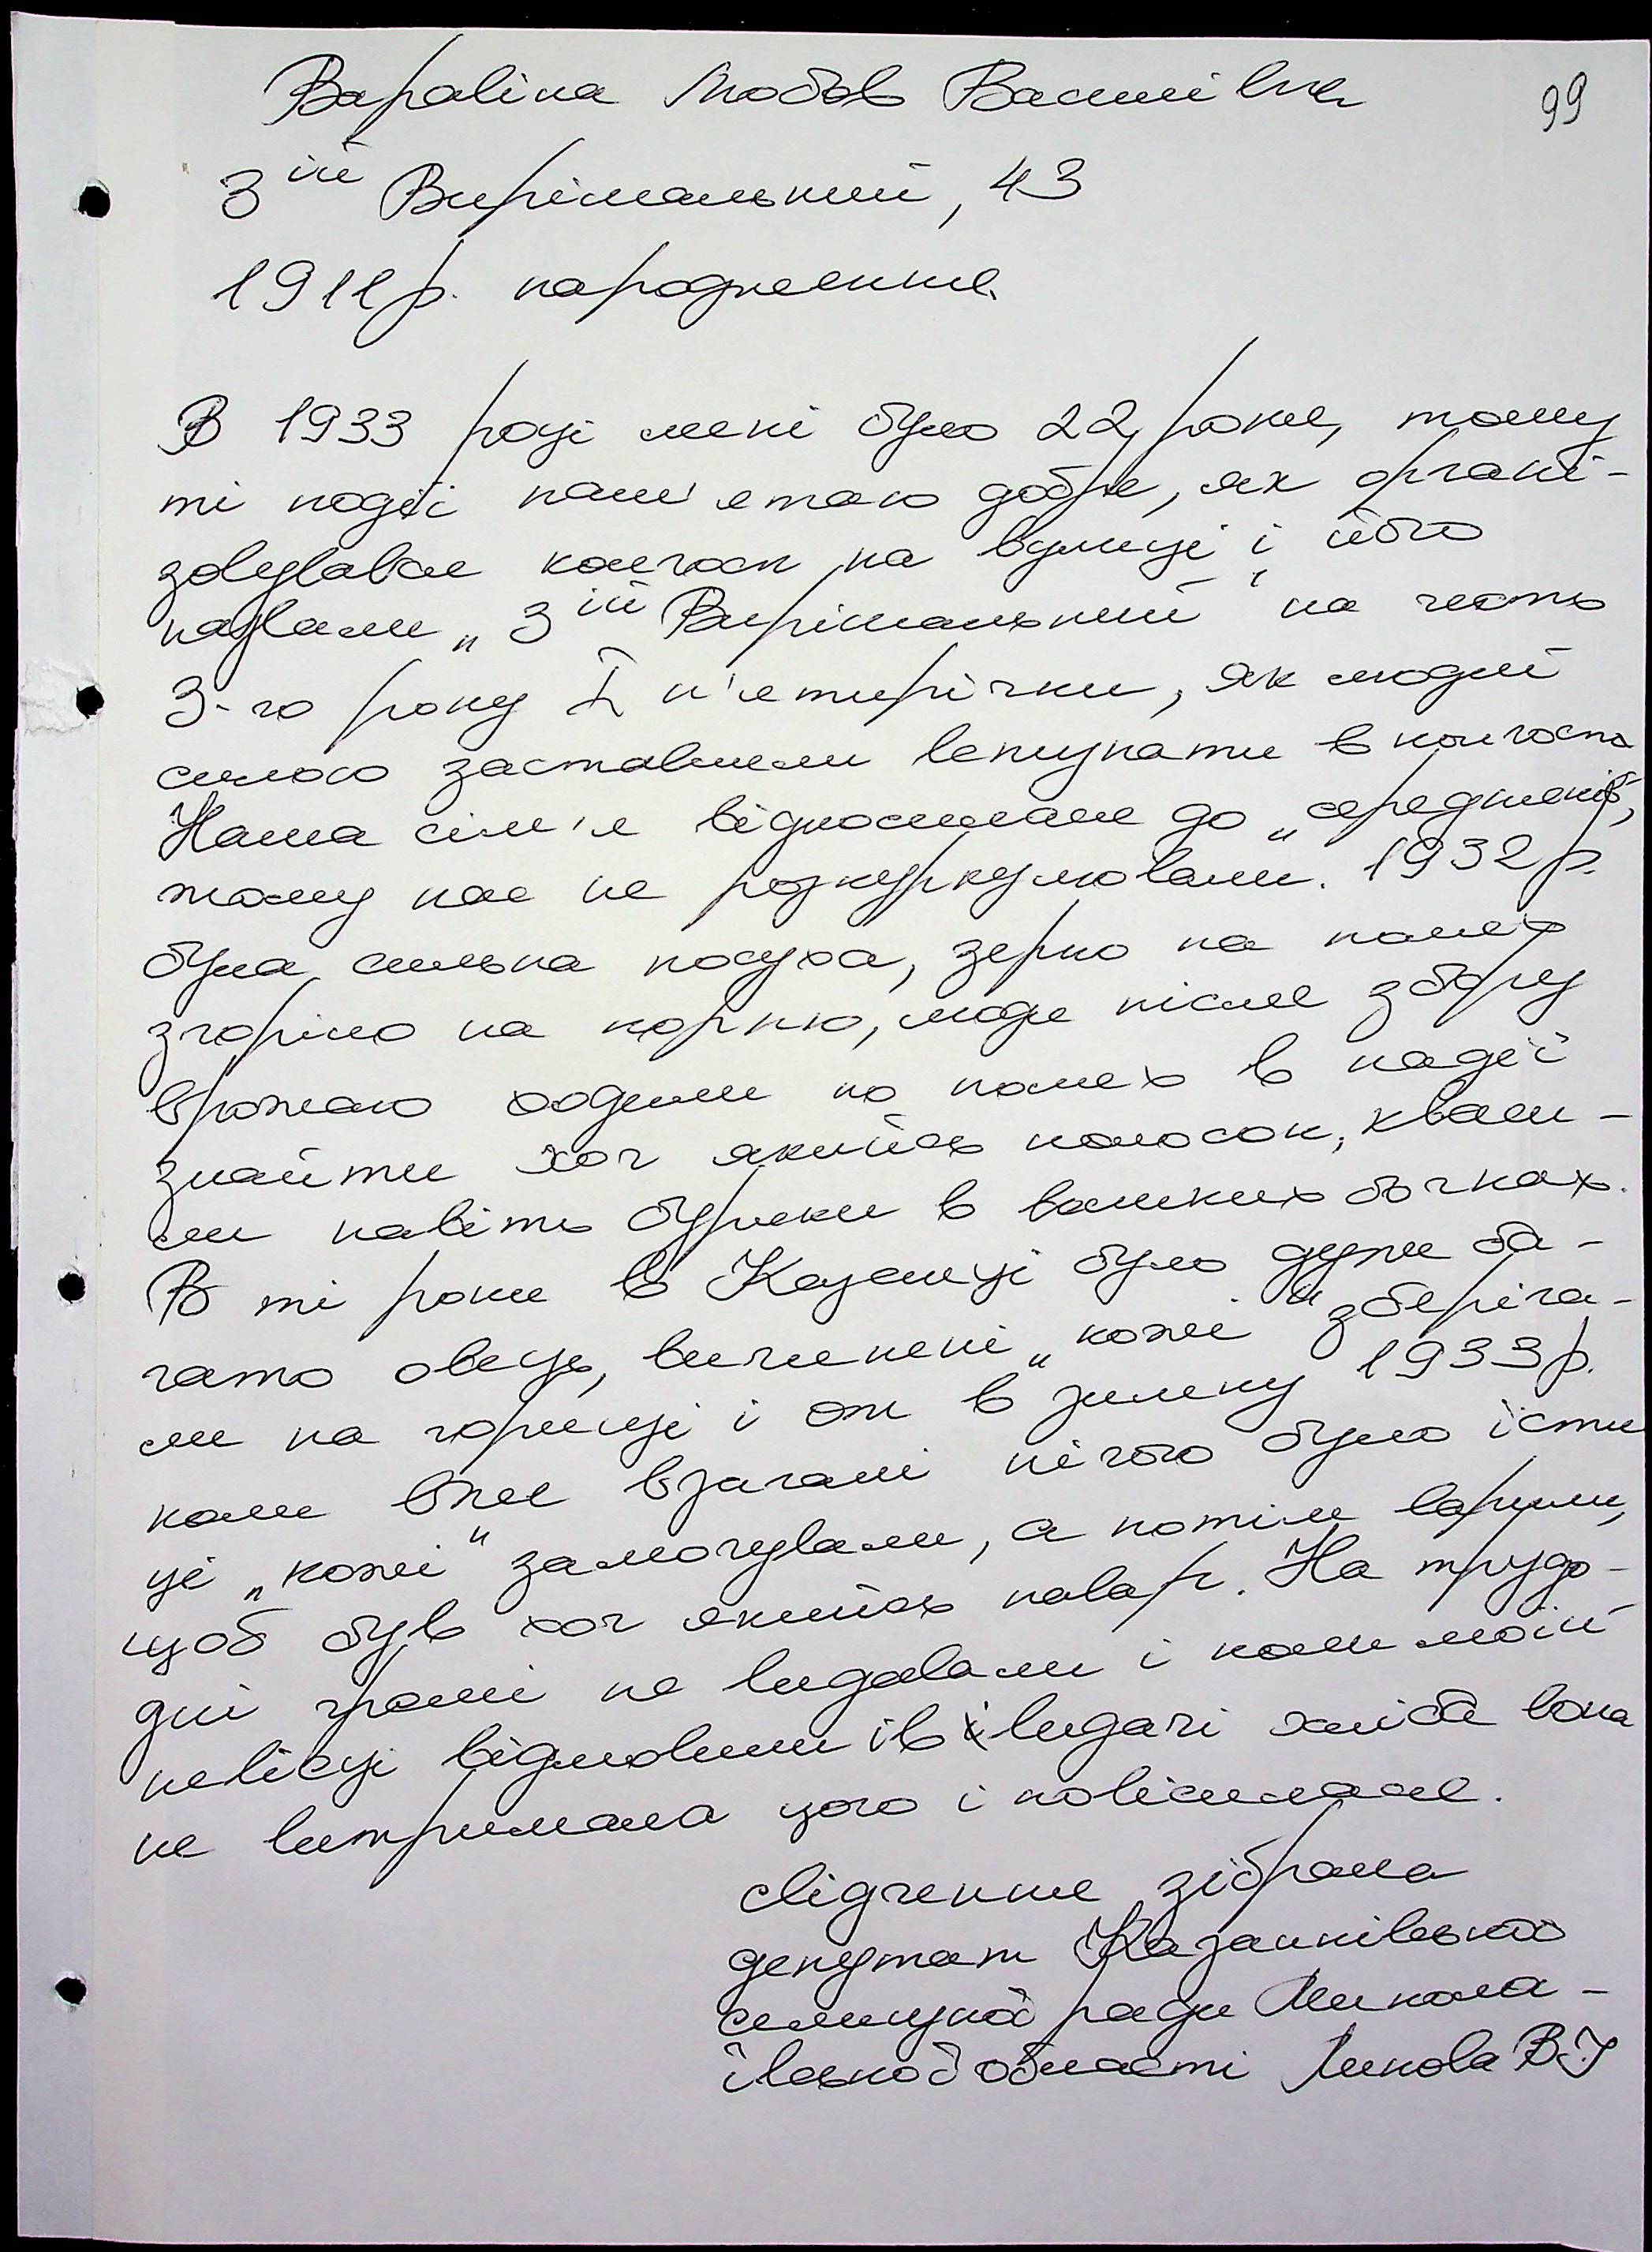 Вараліна Любов Василівна
99
3ій Вирішальний, 43
1911р. народження.
В 1933 році мені було 22 роки, тому
ті події пам'ятаю добре, як органі-
зовувався колгосп на вулиці і його
назвали „3ій Вирішальний" на честь
3-го року I п'ятирічки, як людей
силою заставляли вступати в колгосп.
Наша сім'я відносилась до „середняків",
тому нас не розкуркулювали. 1932р.
була сильна посуха, зерно на полях
згоріло на корню, люди після збору
врожаю ходили по полях в надії
знайти хоч якийсь колосок, кваси-
ли навіть буряки в великих бочках.
В ті роки в Казанці було дуже ба-
гато овець, вичинені „кожі" зберіга-
ли на горищі і от в зимку 1933р.
коли вже взагалі нічого було їсти
ці „кожі" замочували, а потім варили,
щоб був хоч якийсь навар. На трудо-
дні гроші не видавали і коли моїй
невісці відмовили і в видачі хліба вона
не витримала цього і повісилась.
свідчення зібрала
депутат Казанківської
селищної ради Микола-
ївської області Линова В.І